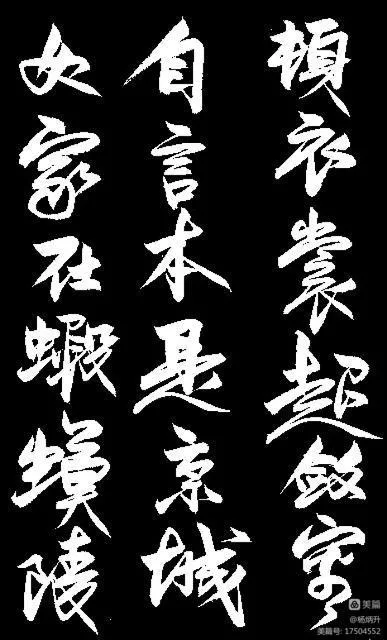 頓衣裳起斂容
自言本是京城
女家在蝦蟆陵
美篇
@杨炳升
美篇号: 17504552